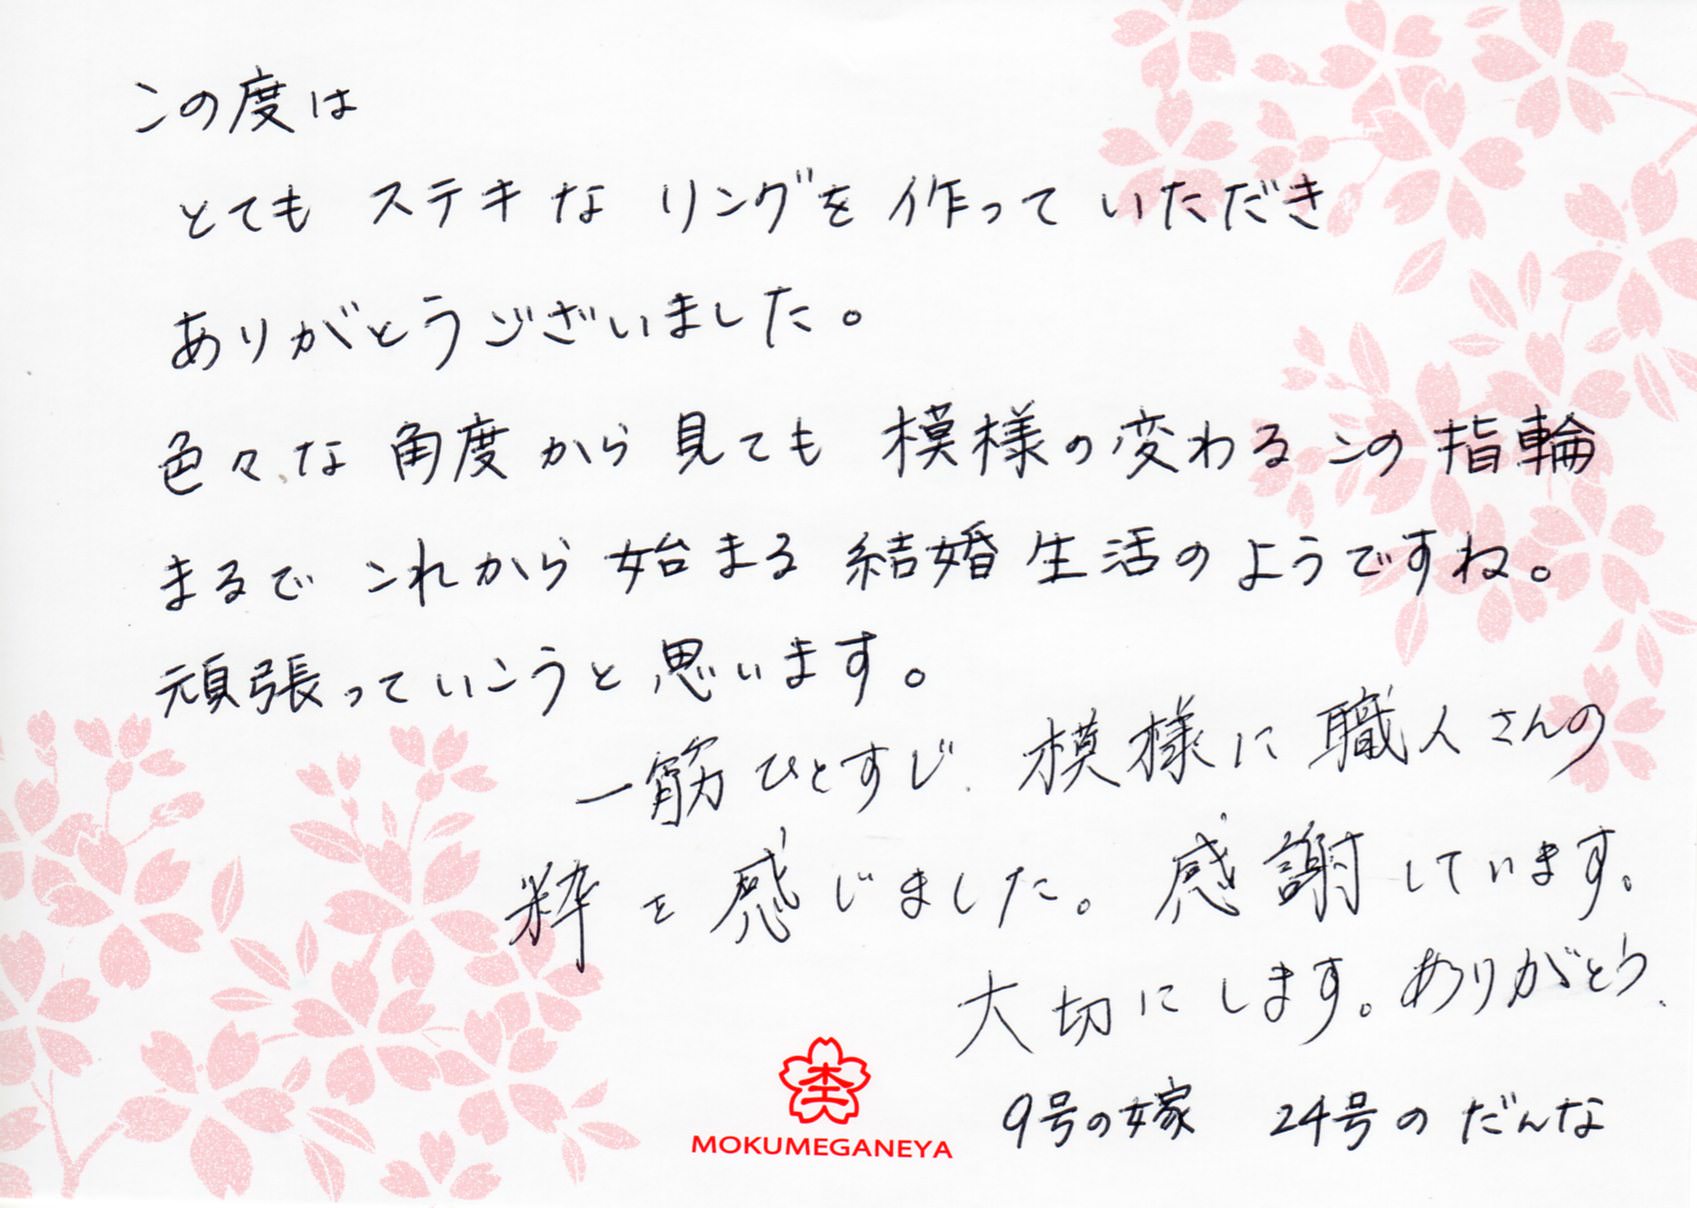 この度は
とても ステキな リングを 作って いただき
ありがとうございました。
色々な 角度から 見ても 模様の変わる この 指輪
まるで これから 始まる 結婚生活のようですね。
頑張っていこうと思います。
一筋ひとすじ、模様に職人さんの
粋を感じました。感謝しています。
大切にします。ありがとう。
9号の嫁 24号のだんな
MOKUMEGANEYA